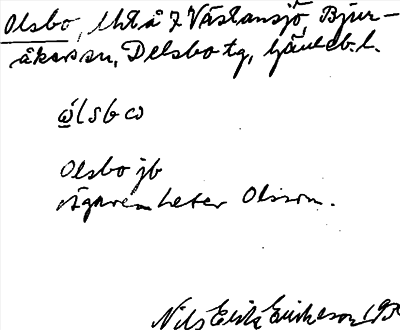 Olsbo, lht å 7 Västansjö, Bjur-
åkers sn, Delsbo tg, Gävleb. l.
ώlsbω
Olsbo jb
Ägaren heter Olsson.
Nils Erik Eriksson 19